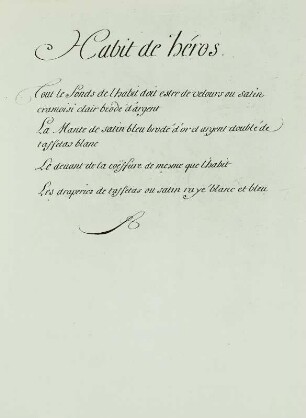 Habit de héros.
Tout le fonds de l'habit doit estre de velours ou satin
cramoisi clair brodé d'argent
La Mante de satin bleu brodé d'or et d'argent doublé de
taffetas blanc
Le devant de la coëffure de mesme que l'habit
Les draperies de taffetas ou satin rayé blanc et bleu